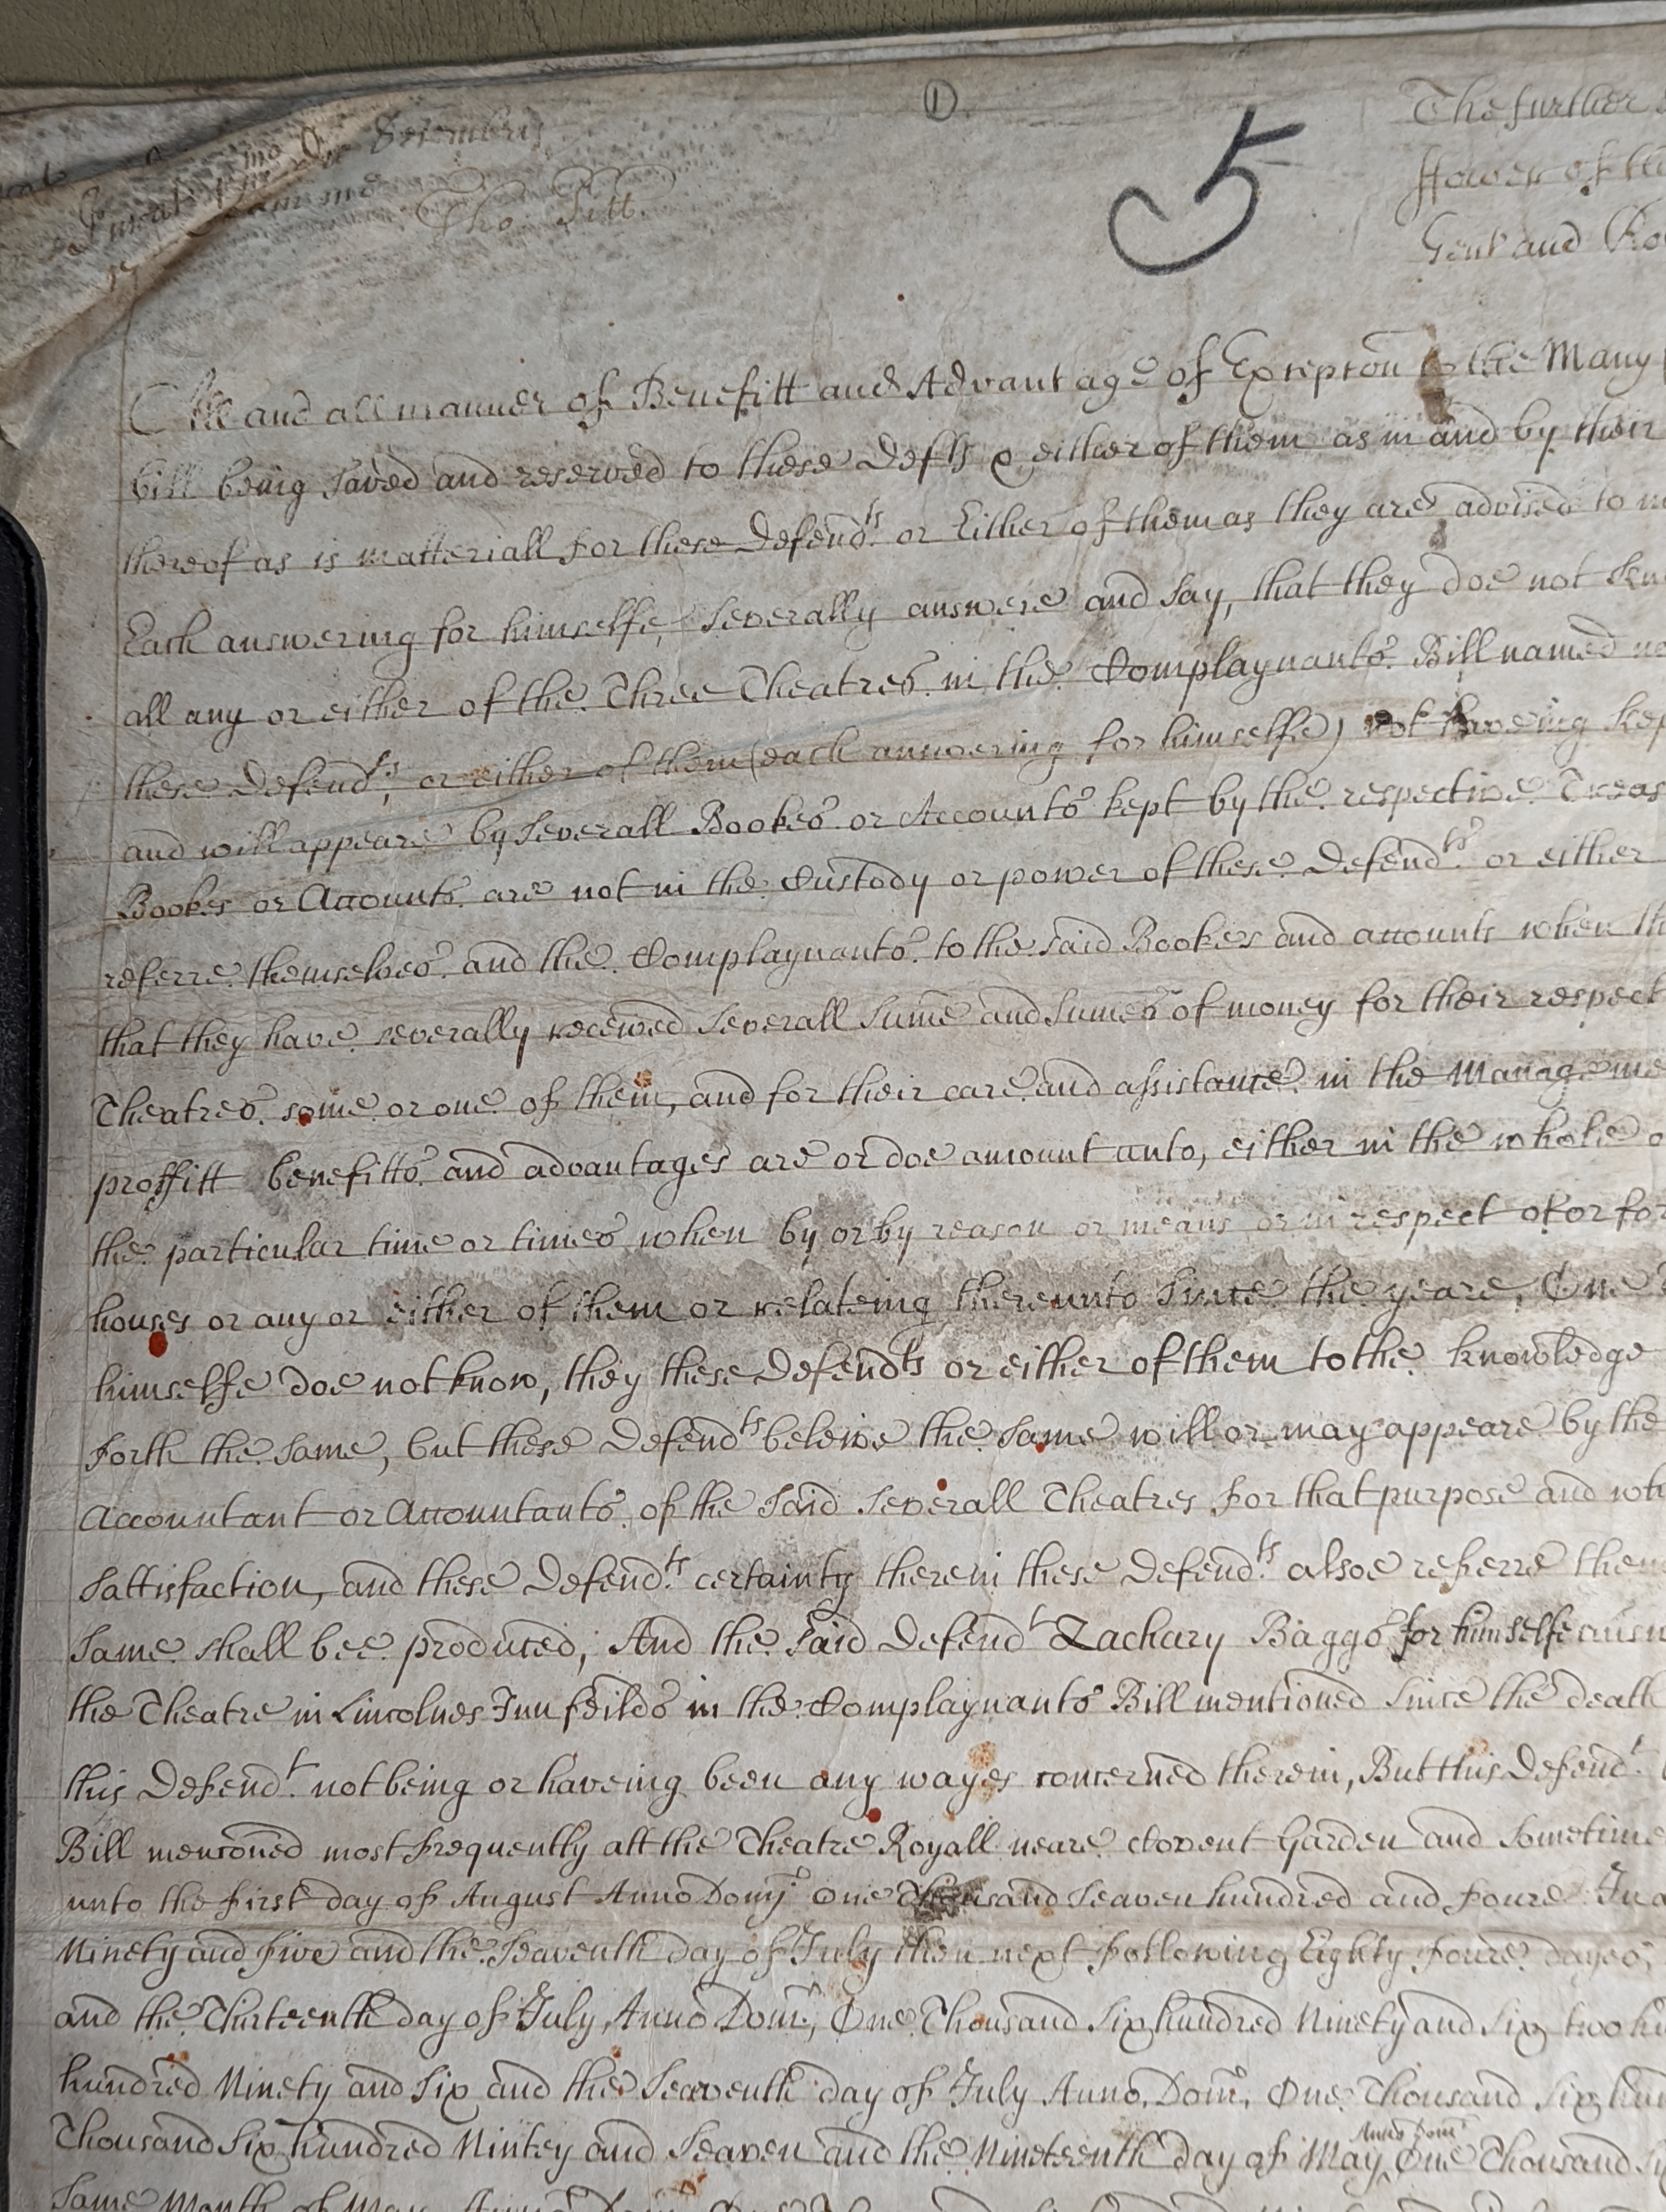 ①
5
The further
Jurat Decembris
Tho. Pitt.
Gent and
All and all manner of Benefitt and Advantage of Excepcon to the Many
bill being saved and reserved to these Defts & either of them as in and by their
thereof as is matteriall for these Defendts. or Either of them as they are advised to
Each answering for himselfe, Severally answere and say, that they doe not
all any or either of the Three Theatres in the Complaynants Bill named
these Defendts, or either of them (each answering for himselfe) not haveing
and will appeare by Severall Bookes or Accounts kept by the respective
Bookes or Accounts are not in the Custody or power of these Defendts. or either
referre themselves and the Complaynants to the said Bookes and accounts when
that they have severally received Severall Sume and Sumes of money for their
Theatres some or one of them, and for their care and assistance in the
proffitt benefitts and advantages are or doe amount unto, either in the whole
the particular time or times when by or by reason or means or in respect of or for
houses or any or either of them or relateing thereunto Since the yeare, One
himselfe doe not know, they these Defendts or either of them to the knowledge
forth the same, but these Defendts beleive the same will or may appeare by the
Accountant or Accountants of the Said Severall Theatres for that purpose and
Sattisfaction, and these Defendts. certainty therein these Defendts. alsoe referre
Same shall bee produced; And the said Defendt Zachary Baggs for himselfe
the Theatre in Lincolnes Inn feilds in the Complaynants Bill mentioned Since the death
this Defendt. not being or haveing been any wayes concerned therein, But this Defendt.
Bill menconed most frequently att the Theatre Royall neare Covent Garden and
unto the first day of August Anno Domj One Thousand Seaven hundred and foure
Ninety and five and the Seaventh day of July then next following Eighty foure dayes,
and the Thirteenth day of July, Anno Dom, One Thousand Six hundred Ninety and Six two
hundred Ninety and Six and the Seaventh day of July Anno Dom, One Thousand Six
Anno Dom
Thousand Six hundred Nintey and Seaven and the Nineteenth day of May One Thousand
Same Month of May Anno Dom